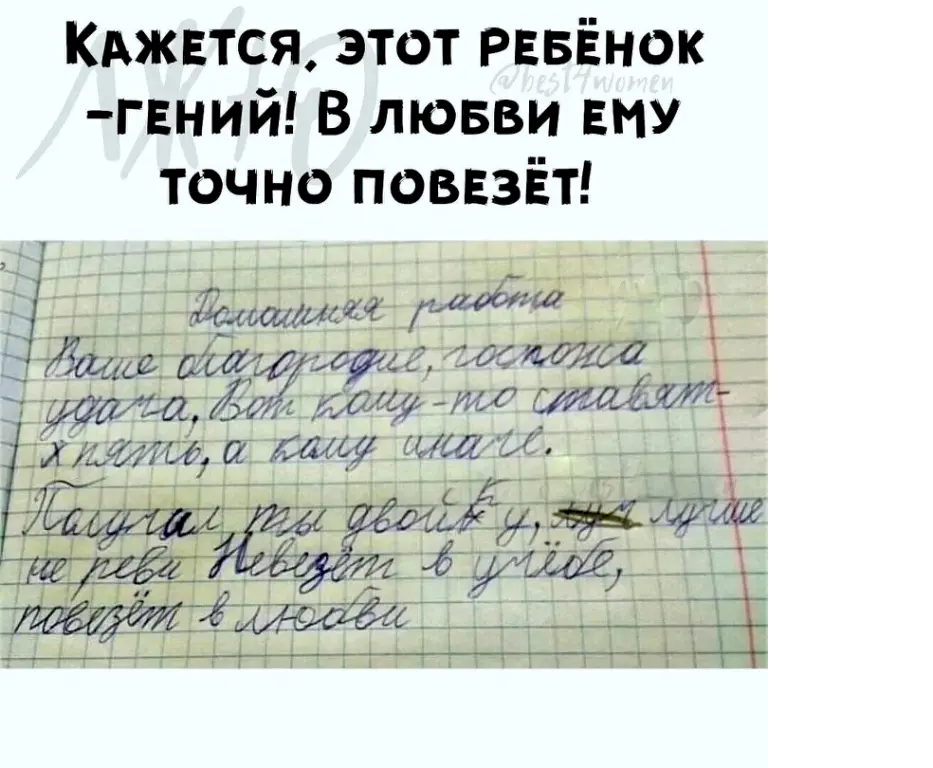 КАЖЕТСЯ, ЭТОТ РЕБЁНОК
-ГЕНИЙ! В ЛЮБВИ ЕМУ
ТОЧНО ПОВЕЗЁТ!
@best4women
Домашняя работа
Ваше благородие, госпожа
удача, Вот кому-то ставят-
х пять, а кому иначе.
Получил ты двойку, лучше
не реви Невезёт в учёбе,
повезёт в любви